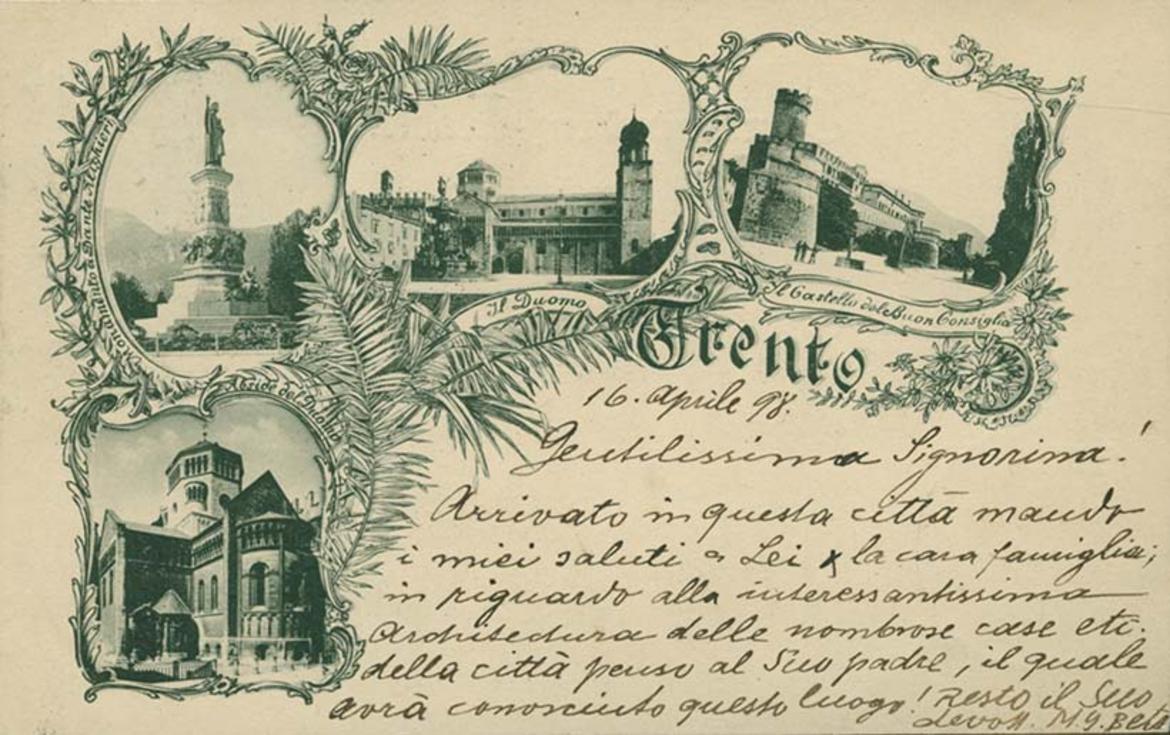 Monumento a Dante Alighieri
Il Duomo
Il Castello del Buon Consiglio
Trento
Abside del Duomo
16. Aprile 98.
Gentilissima Signorina!
Arrivato in questa città mando
i miei saluti a Lei & la cara famiglia;
in riguardo alla interessantissima
Architectura delle nombrose case etc.
della città penso al Suo padre, il quale
avrà conosciuto questo luogo! Resto il Suo
devott. M. G.